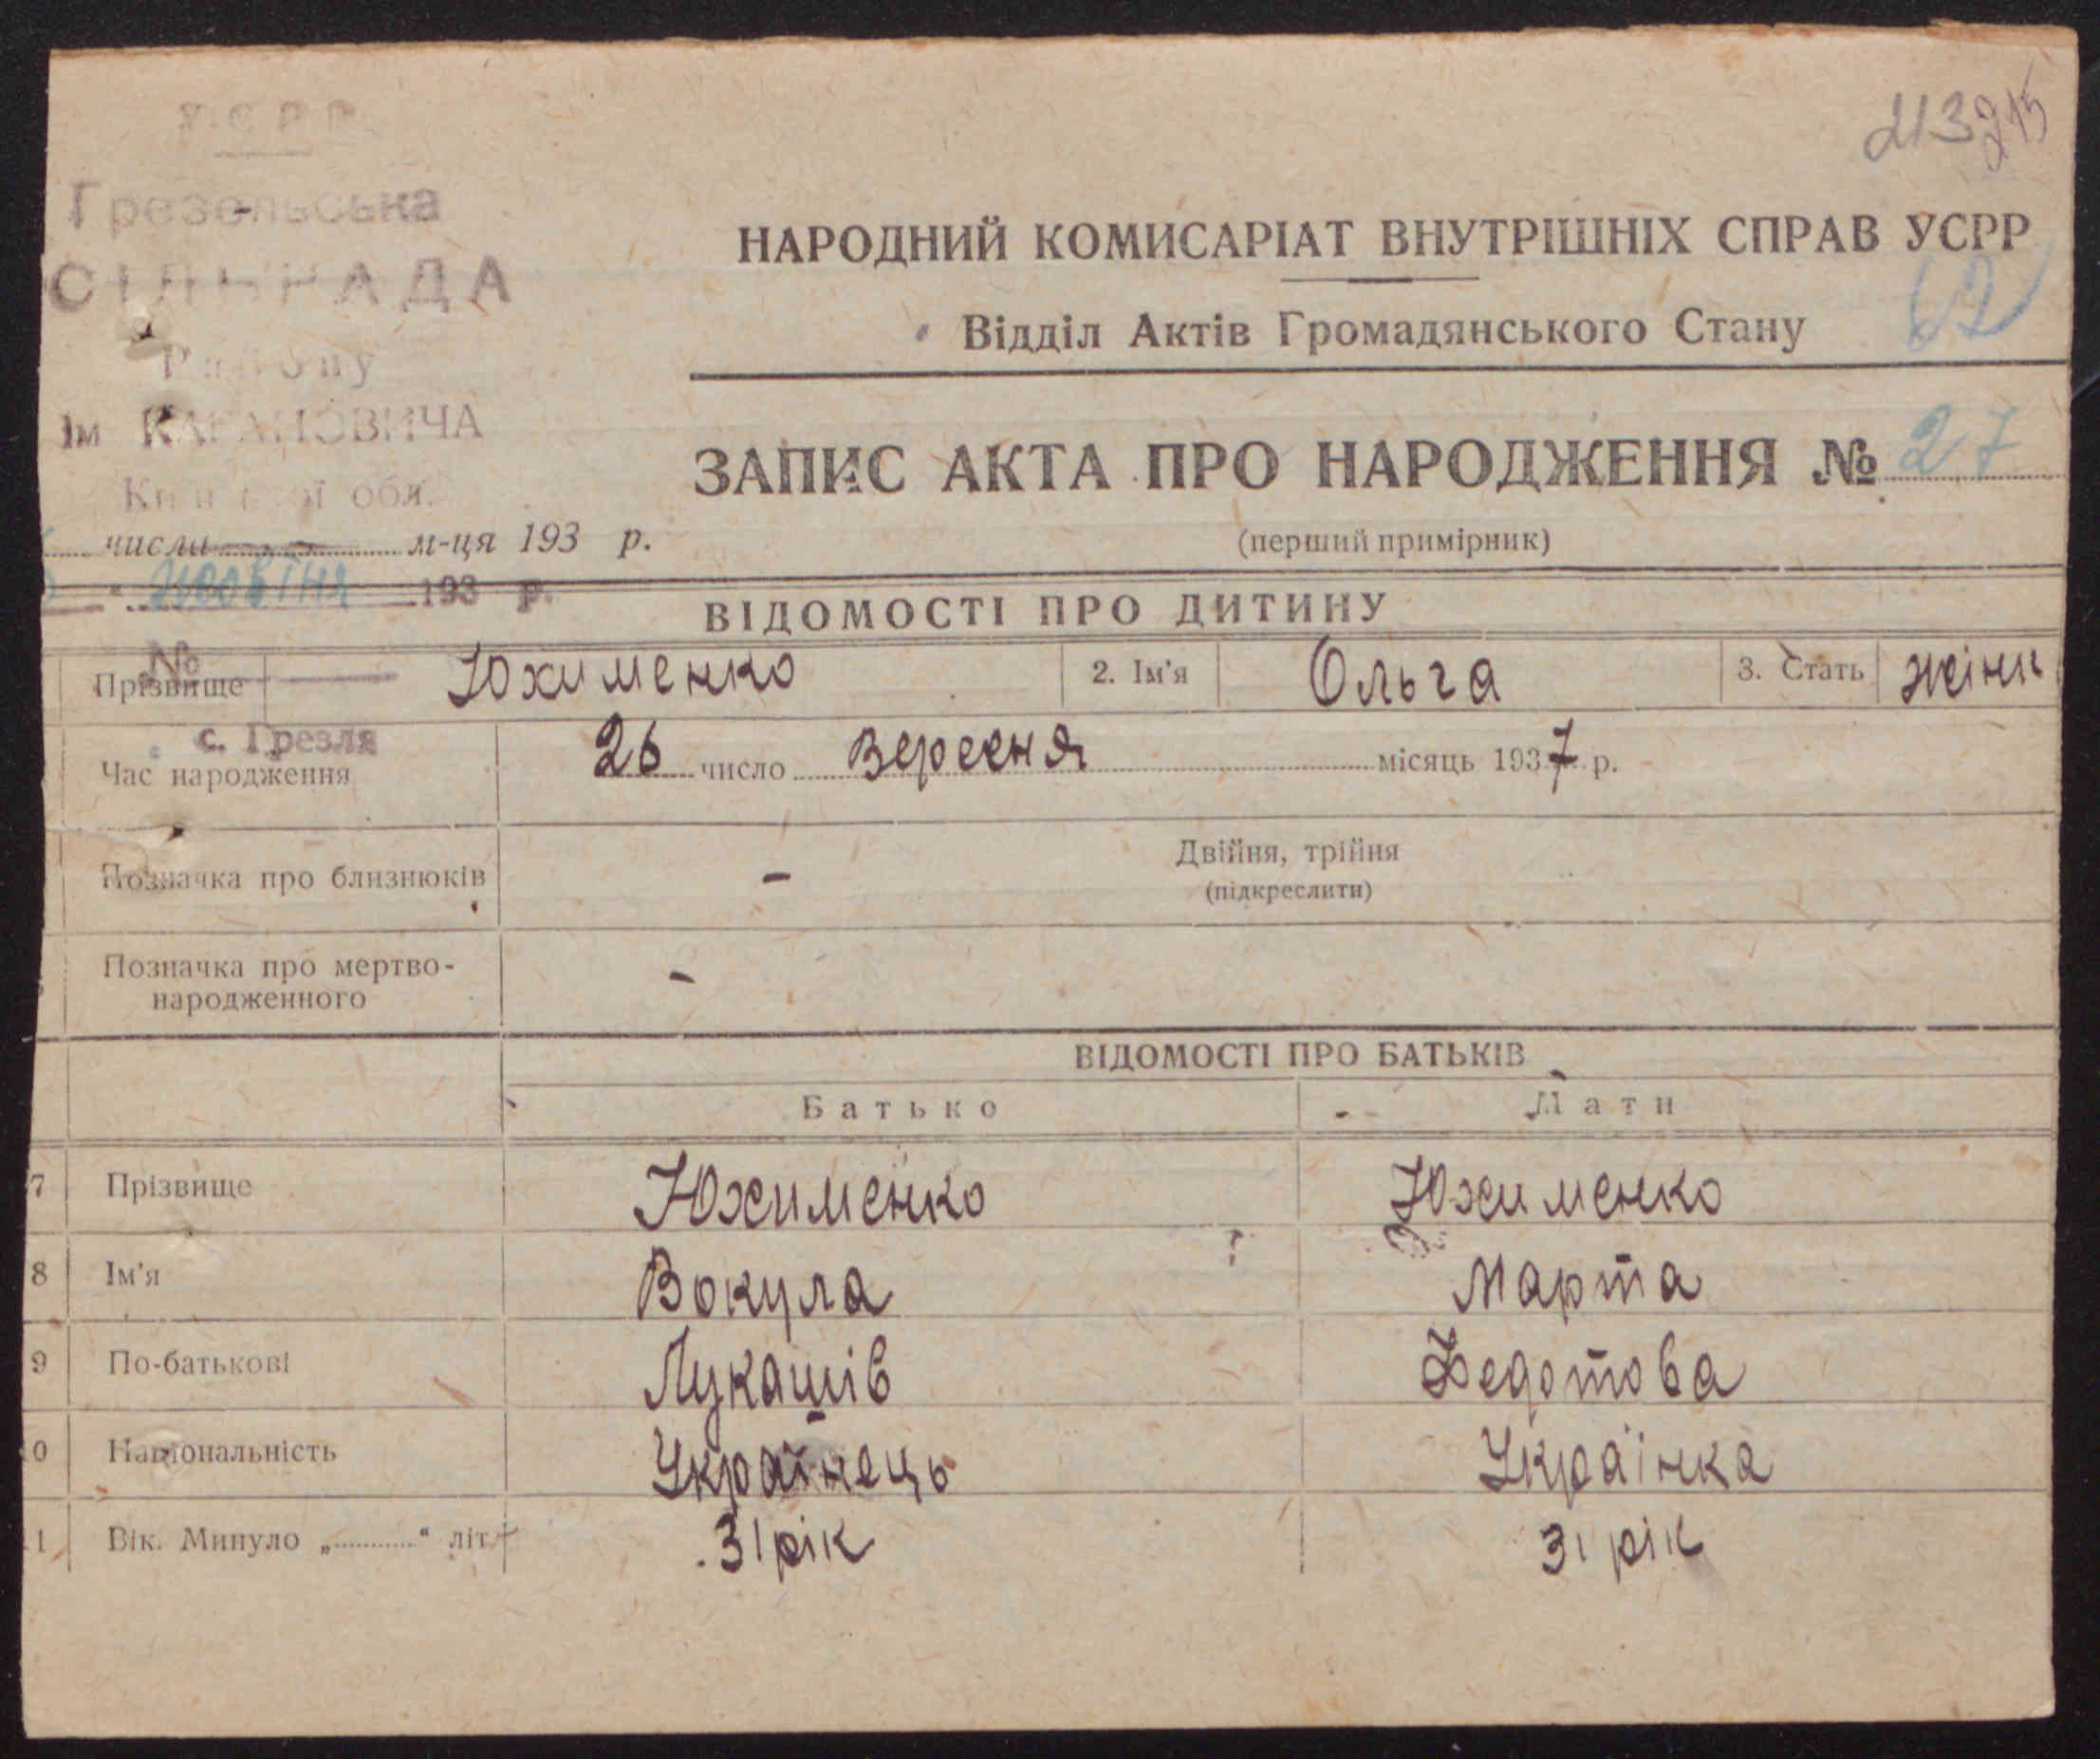 У.С.Р.Р.
213 215
Грезельська
СІЛЬРАДА
Району
Ім КАГАНОВИЧА
Київської обл.
НАРОДНИЙ КОМИСАРІАТ ВНУТРІШНІХ СПРАВ УСРР
62
Відділ Актів Громадянського Стану
ЗАПИС АКТА ПРО НАРОДЖЕННЯ № 27
(перший примірник)
числа м-ця 193 р.
" жовтня 193 р.
№
с. Грезля
ВІДОМОСТІ ПРО ДИТИНУ
Прізвище Юхименко 2. Ім'я Ольга 3. Стать жіни
Час народження 26 число Вересня місяць 1937 р.
Позначка про близнюків - Двійня, трійня
(підкреслити)
Позначка про мертво-
народженного -
ВІДОМОСТІ ПРО БАТЬКІВ
Батько Мати
7 Прізвище Юхименко Юхименко
8 Ім'я Вокула Марта
9 По-батькові Лукашів Федотова
0 Національність Українець Українка
1 Вік. Минуло „..........“ літ 31 рік 31 рік